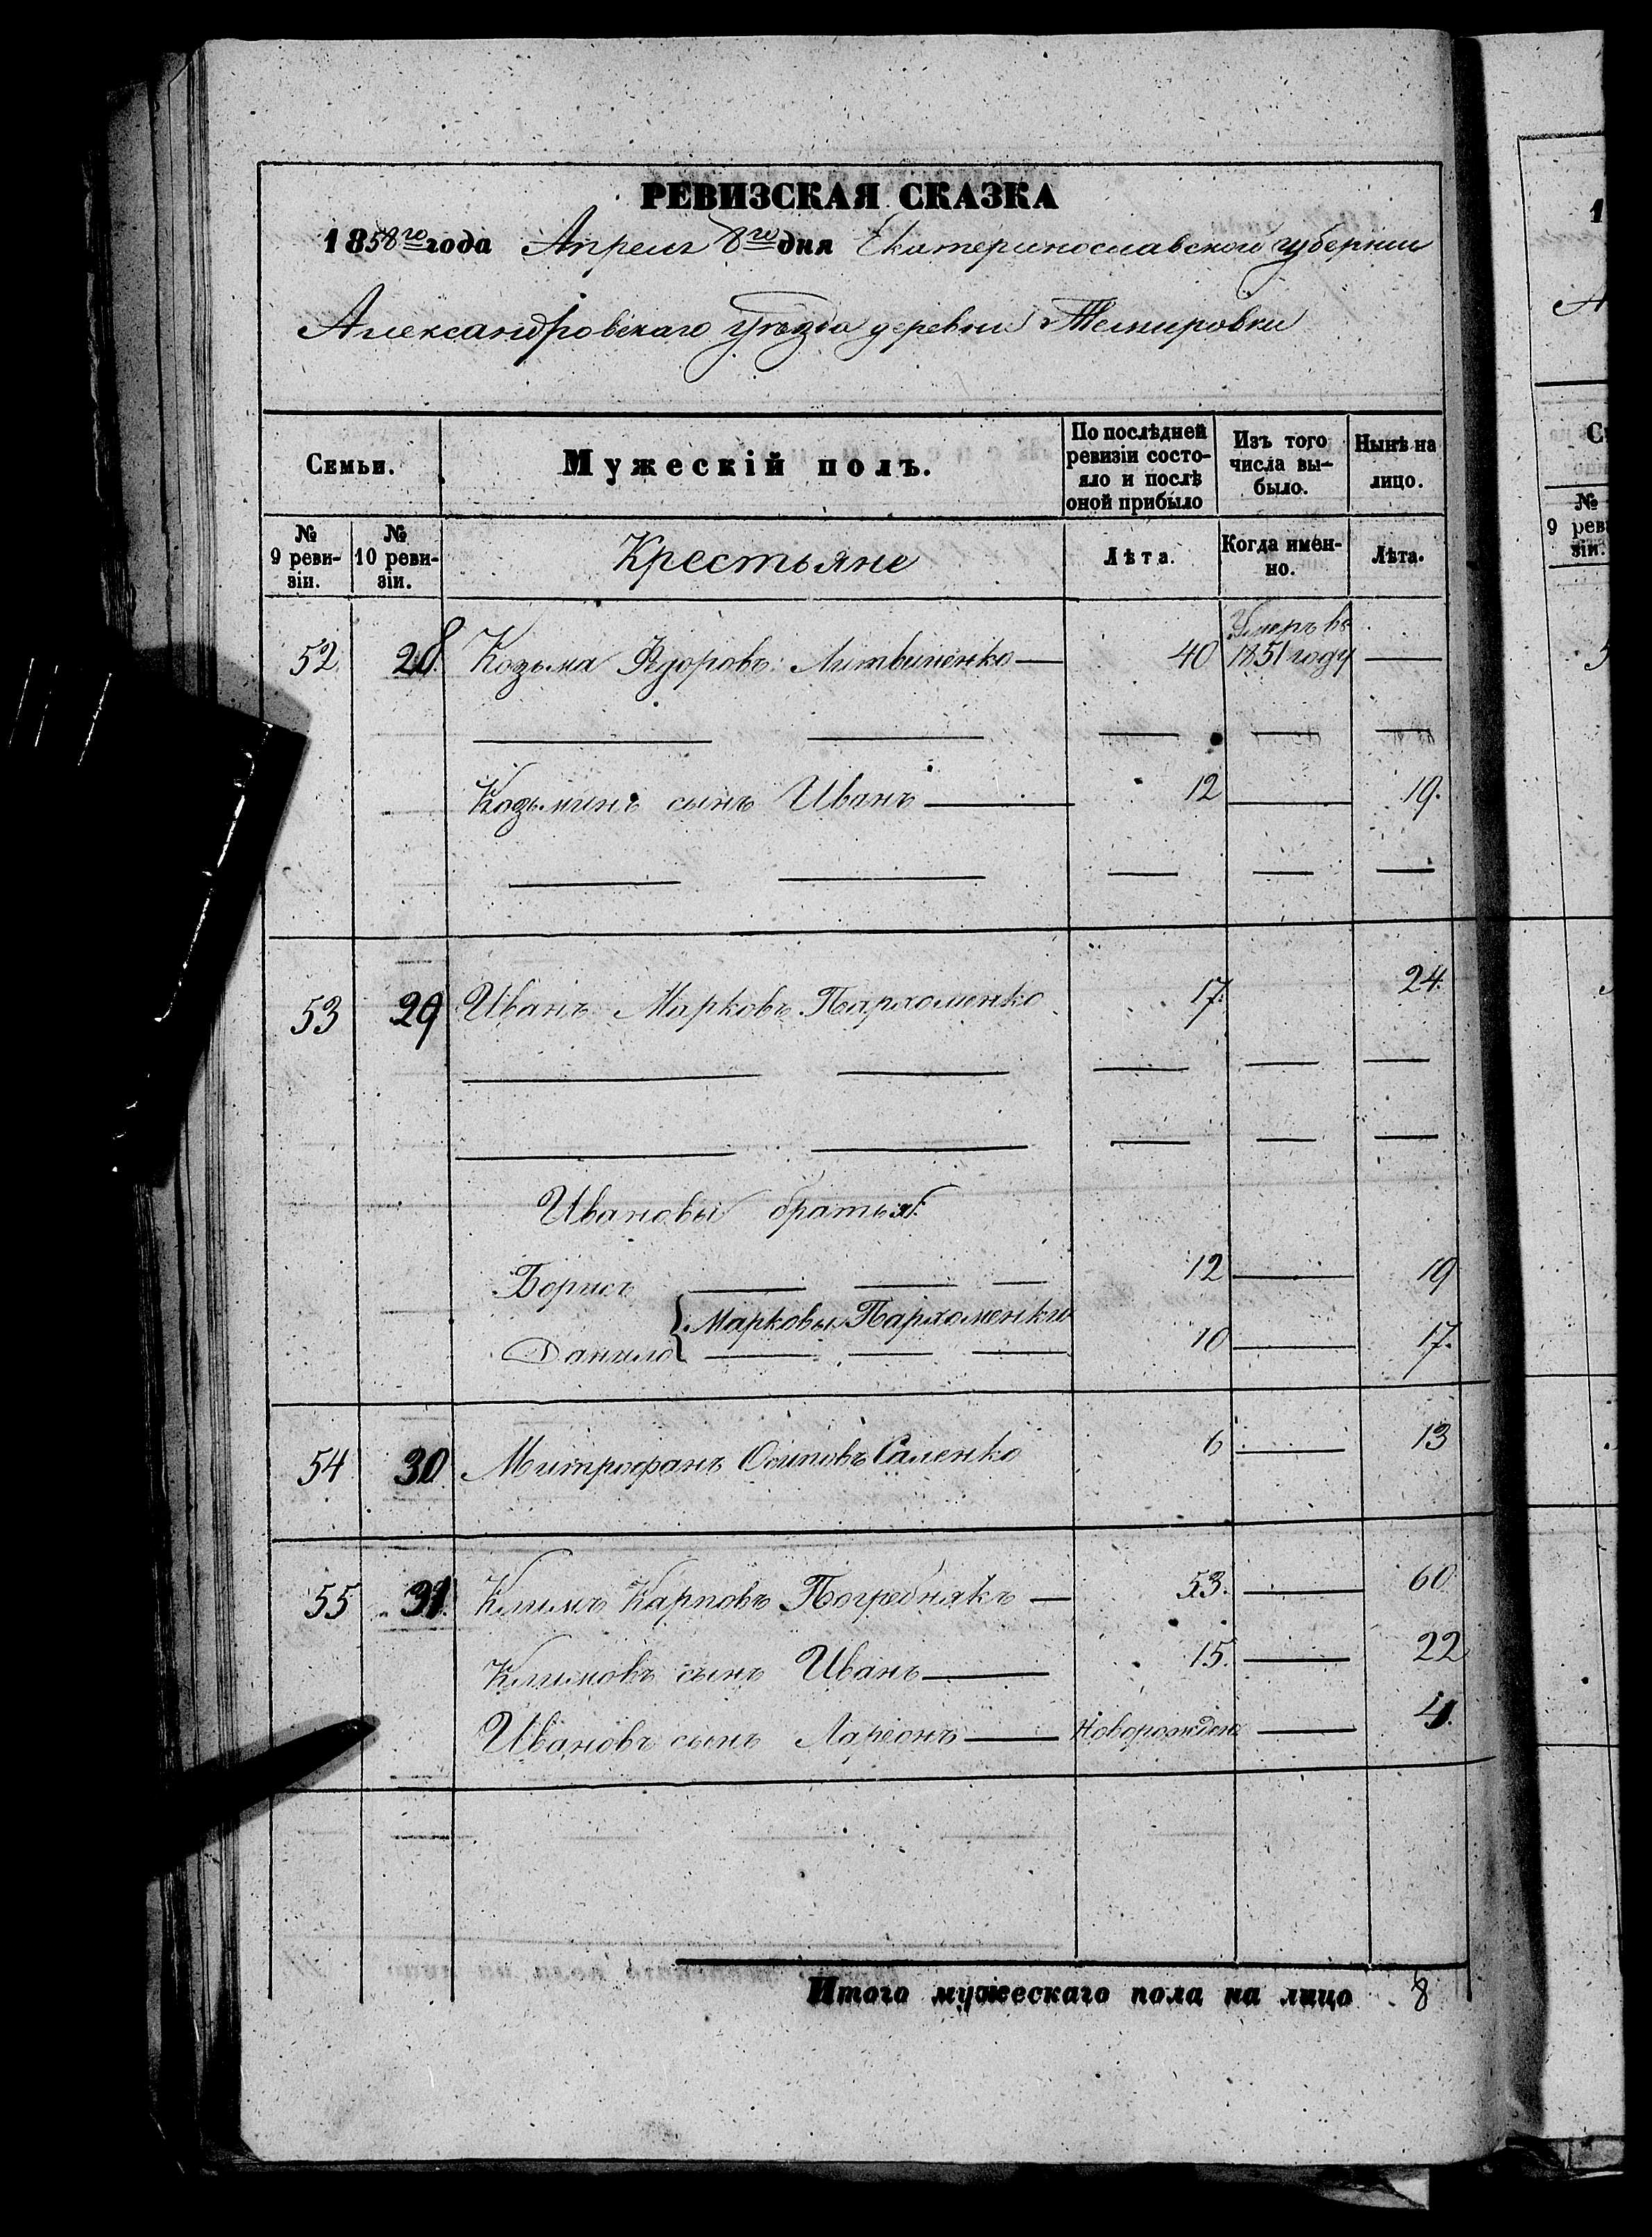 РЕВИЗСКАЯ СКАЗКА
1858го года Апреля 8го дня Екатеринославской губернии
Александровскаго уѣзда деревни Темировки
Семьи.
Мужескій полъ.
По послѣдней ревизіи состояло и послѣ оной прибыло
Изъ того числа выбыло.
Нынѣ на лицо.
№ 9 ревизіи.
№ 10 ревизіи.
Крестьяне
Лѣта.
Когда именно.
Лѣта.
52 28. Козьма Ѳдоровъ Литвиненко — 40 Умеръ въ 1851 году —
Козьминъ сынъ Иванъ — 12 — 19.
53 29 Иванъ Марковъ Пархоменко 17. 24.
Ивановы братья:
Борисъ 12 — 19
Марковы Пархоменки
Данило 10 — 17.
54 30. Митрофанъ Осиповъ Саленко 6 — 13
55 31. Климъ Карповъ Погребнякъ — 53. — 60.
Климовъ сынъ Иванъ — 15. — 22
Ивановъ сынъ Лареонъ — Новорожден — 4.
Итого мужескаго пола на лицо 8
1
А
С
№
9 рев
зіи.
5